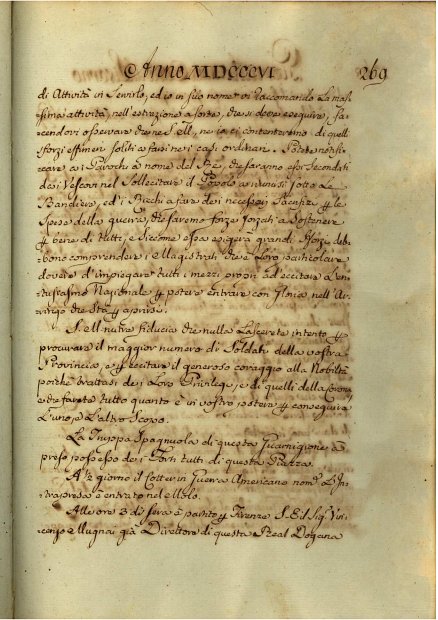 Anno MDCCCVI 269
di Attività in Servirlo, ed io in suo nome vi raccomando la mas
sima attività, nell'estrazione a sorte, che si deve eseguire, fa
cendovi osservare che ne S. ell. ne io ci contenteremo di quell
sforzi effimeri soliti a farsi ne i casi ordinari. Potete notifi
care a i Parochi a nome del Rè, che saranno essi secondati
dei Vescovi nel Sollecitare il Popolo a riunirsi sotto le
Bandiere, ed i Ricchi a fare dei necessari Sacrifizi p le
Spese della guerra, che saremo forze forzati a Sostenere
p bene di tutti, e Siccome essa esigerà grandi sforzi deb
bono comprendere i Magistrati che è loro particolare
dovere d'impiegare tutti i mezzi propri ad eccitare l'en
tusiasmo Nazionale p potere entrare con gloria nell'Ar
ringo che stà p aprirsi.
S. ell. nutre fiducia che nulla Lascerete intento p
procurare il maggior numero di Soldati della vostra
Provincia, e p eccitare il generoso coraggio alla Nobiltà
poiche trattasi dei Loro Privilegi, e di quelli della Corona
e che farete tutto quanto è in vostro potere p conseguire
l'uno, e l'altro Scopo.
La Truppa Spagnuola di questa Guarnigione à
preso possesso dei Forti tutti di questa Piazza.
A ½ giorno il Cotter in Guerra Americano nom.o L'In
trapresa è entrato nel Molo.
Alle ore 3 di sera è partito p Firenze S. E. il Sig. Vin
cenzo Mugnai già Direttore di questa Real Dogana